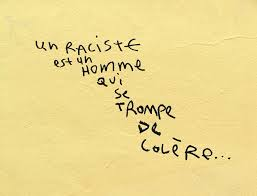 un RACiSTE
est un
HOMME
QUi
SE
TROMPE
DE
COLÈRE...